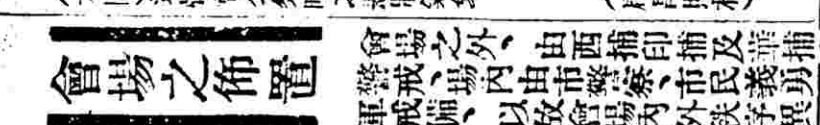 會場之佈置
會場之外、由西捕印捕及華捕
警戒、場內由市警察、市民義勇
軍戒備、以故會場內外秩序異